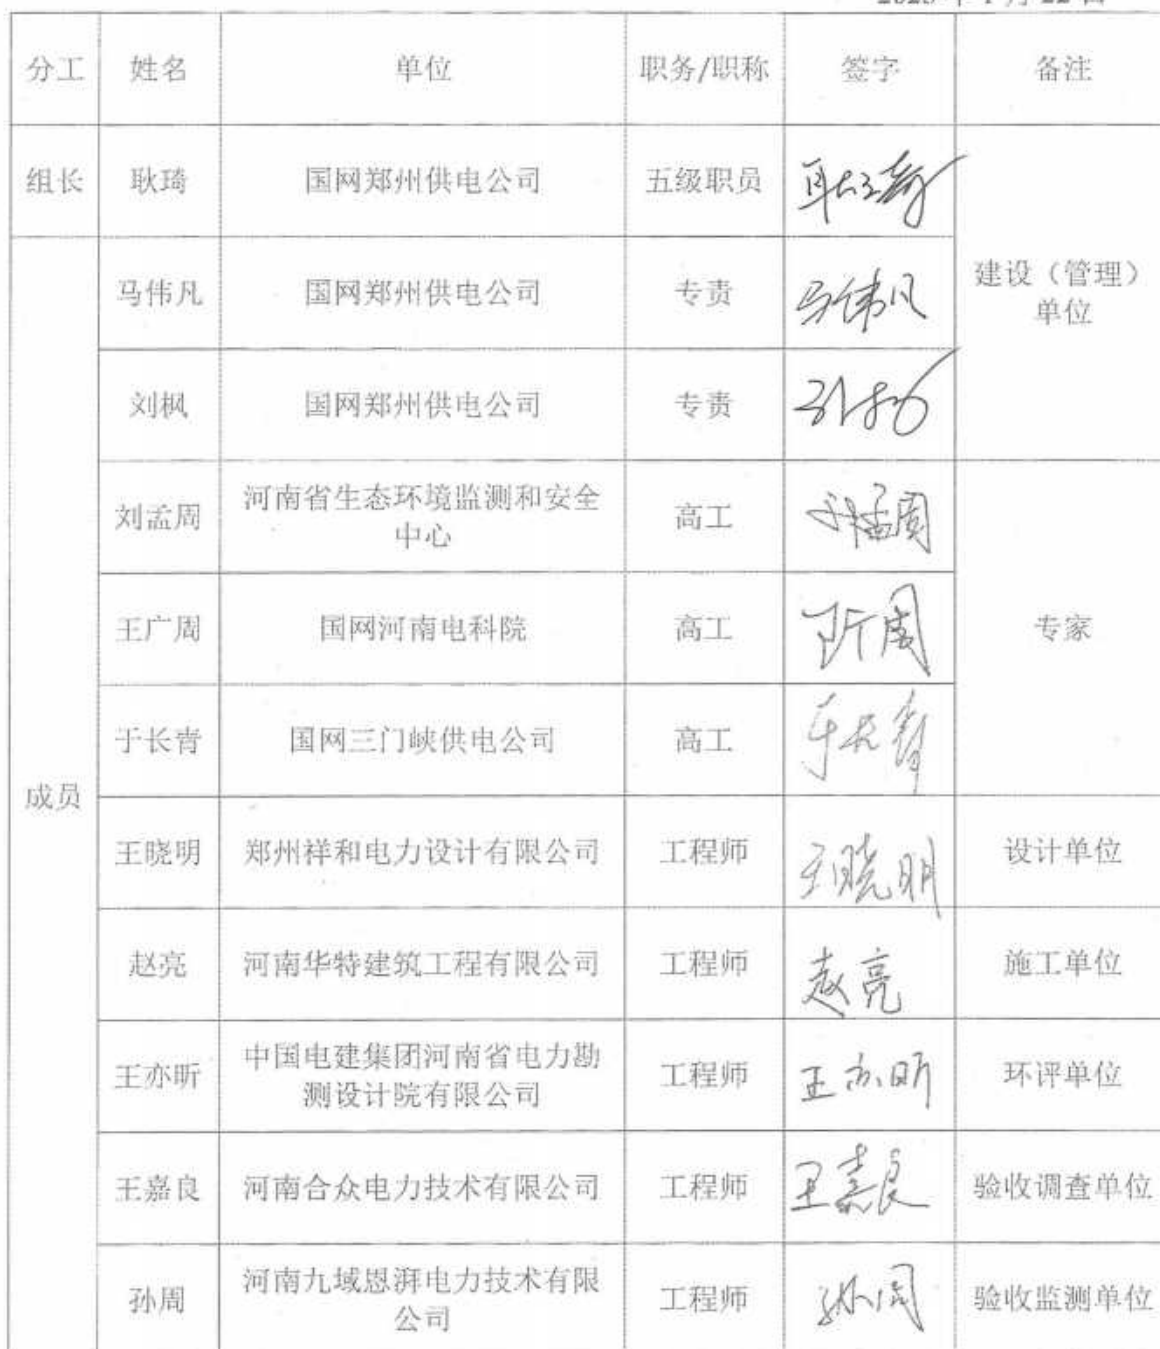 分工 姓名 单位 职务/职称 签字 备注
组长 耿琦 国网郑州供电公司 五级职员 耿琦
马伟凡 国网郑州供电公司 专责 马伟凡
建设（管理）
单位
刘枫 国网郑州供电公司 专责 刘枫
刘孟周 河南省生态环境监测和安全
中心 高工 刘孟周
王广周 国网河南电科院 高工 王广周 专家
于长青 国网三门峡供电公司 高工 于长青
成员
王晓明 郑州祥和电力设计有限公司 工程师 王晓明 设计单位
赵亮 河南华特建筑工程有限公司 工程师 赵亮 施工单位
王亦昕 中国电建集团河南省电力勘
测设计院有限公司 工程师 王亦昕 环评单位
王嘉良 河南合众电力技术有限公司 工程师 王嘉良 验收调查单位
孙周 河南九域恩湃电力技术有限
公司 工程师 孙周 验收监测单位